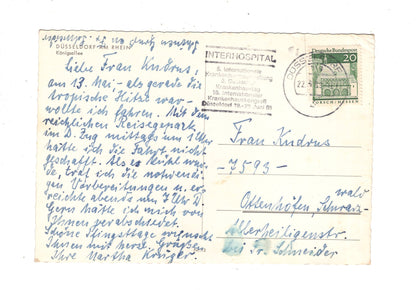 DÜSSELDORF AM RHEIN
Königsallee
Liebe Frau Kudrus,
am 13. Mai - als gerade die
tropische Hitze war -
wollte ich fahren. Mit dem
reichlichen Reisegepäck
im D-Zug mittags um 1 Uhr
hätte ich die Fahrt nicht
geschafft. Als es kühl wur-
de, traf ich die notwendi-
gen Vorbereitungen u. er-
reichte abends um 7 Uhr D.
Gern hätte ich mich von
Ihnen verabschiedet.
Schöne Pfingsttage wünscht
Ihnen mit herzl. Grüßen
Ihre Martha Krüger.
INTERHOSPITAL
5. Internationale
Krankenhausausstellung
5. Deutscher
Krankenhaustag
Internat.
Krankenhauskongreß
Düsseldorf
DÜSSELDORF
22.
Deutsche Bundespost
20
LORSCH/HESSEN
Frau Kudrus
-7593-
Ottenhöfen, Schwarz-
wald
Allerheiligenstr.
bei Fr. Schneider